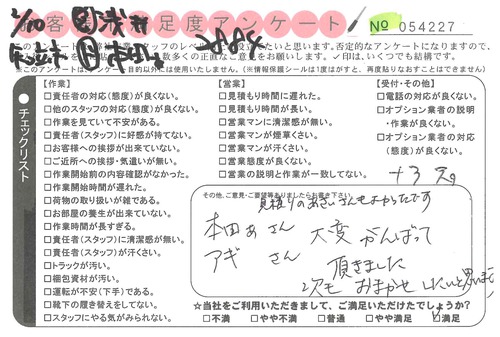 お客様満足度アンケート
No 054227
2/10
✓印は、いくつでも結構です。
※このアンケートは、アンケート目的以外には使用いたしません。(※情報保護シールは1度はがすと、再度貼りなおすことはできません)
チェックリスト
【作業】
□責任者の対応(態度)が良くない。
□他のスタッフの対応(態度)が良くない。
□作業を見ていて不安がある。
□責任者(スタッフ)に好感が持てない。
□お客様への挨拶が出来ていない。
□ご近所への挨拶・気遣いが無い。
□作業開始前の内容確認がなかった。
□作業開始時間が遅れた。
□荷物の取り扱いが雑である。
□お部屋の養生が出来ていない。
□作業時間が長すぎる。
□責任者(スタッフ)に清潔感が無い。
□責任者(スタッフ)が汗くさい。
□トラックが汚い。
□梱包資材が汚い。
□運転が不安(下手)である。
□靴下の履き替えをしてない。
□スタッフにやる気がみられない。
【営業】
□見積もり時間に遅れた。
□見積もり時間が長い。
□営業マンに清潔感が無い。
□営業マンが煙草くさい。
□営業マンが汗くさい。
□営業態度が良くない。
□営業の説明と作業が一致してない。
【受付・その他】
□電話の対応が良くない。
□オプション業者の説明
・作業が良くない。
□オプション業者の対応
(態度)が良くない。
その他、ご意見・ご要望等ありましたらお書き下さい
見積りのあさいさんもよかったです
本田あさん 大変がんばって
アギさん 頂きました
次もおまかせしたいと思います
★当社をご利用いただきまして、ご満足いただけたでしょうか?
□不満 □やや不満 □普通 □やや満足 □満足